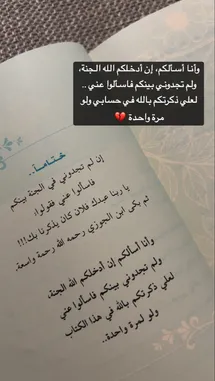 وأنا أسألكم، إن أدخلكم الله الجنة،
ولم تجدوني بينكم فاسألوا عني ..
لعلي ذكرتكم بالله في حسابي ولو
مرة واحدة 💔
ختاماً..
إن لم تجدوني في الجنة بينكم
فاسألوا عني فقولوا:
يا ربنا عبدك فلان كان يذكرنا بك!!!
ثم بكى ابن الجوزي رحمه الله رحمة واسعة.
وأنا أسألكم إن أدخلكم الله الجنة،
ولم تجدوني بينكم فاسألوا عني
لعلي ذكرتكم بالله في هذا الكتاب
ولو لمرة واحدة..